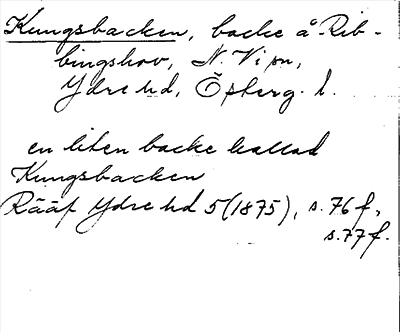 Kungsbacken, backe å Rib-
bingshov, N. Vi sn,
Ydre hd, Österg. l.
en liten backe kallad
Kungsbacken
Rääf Ydre hd 5 (1875), s. 76 f,
s. 77 f.